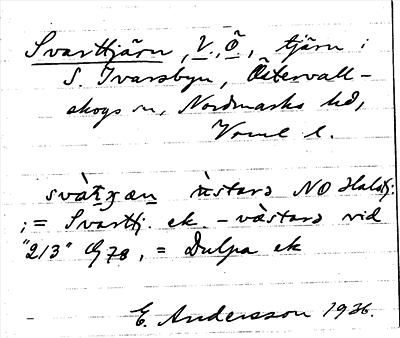 Svarttjärn, V., Ö., tjärn i
S. Ivarsbyn, Östervall-
skogs sn, Nordmarks hd,
Vrml l.
svàtχæn östarə NO
; = Svarttj. ek. - västarə vid
"213" G78, = Dulpa ek
E. Andersson 1926.